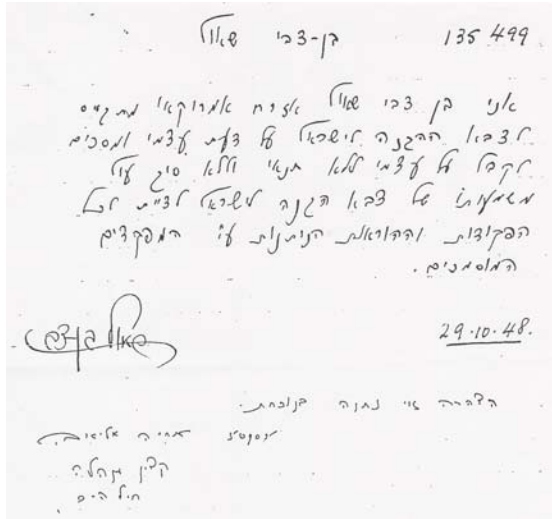 135499 בן-צבי שאול
אני בן צבי שאול אזרח אמריקאי מתגייס
לצבא ההגנה לישראל על דעת עצמי ומסכים
לקבל על עצמי ללא תנאי וללא סיג עול
משמעותו של צבא הגנה לישראל לציית לכל
הפקודות וההוראות הניתנות ע"י המפקדים
המוסמכים.
29.10.48.
שאול בן צבי
הצהרה זו נתנה בנוכחת.
קצין מנהלה
חיל הים